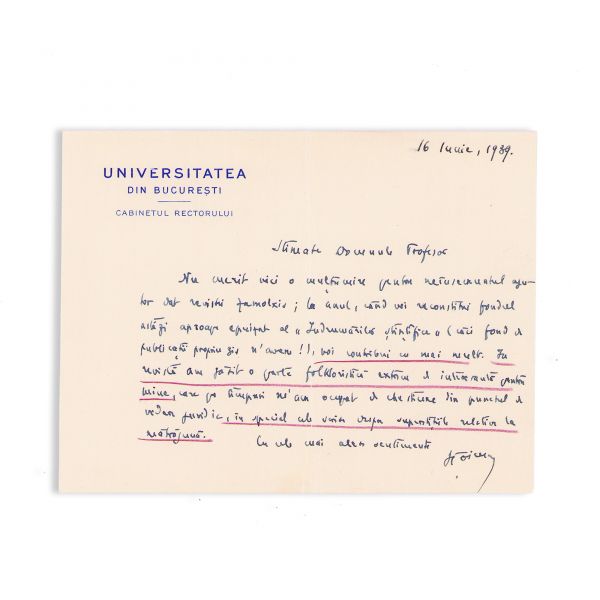 UNIVERSITATEA
DIN BUCUREȘTI
CABINETUL RECTORULUI
16 Iunie, 1939.
Stimate Domnule Profesor
Nu merit nici o mulțumire pentru neînsemnatul aju-
tor dat revistei Zamolxis; la anul, când voi reconstitui fondul
astăzi aproape epuizat al "Îndrumărilor științifice" (căci fond de
publicații propriu zis n'avem!), voi contribui cu mai mult. În
revistă am găsit o parte folkloristică extrem de interesantă pentru
mine, care pe timpuri m'am ocupat de chestiune din punctul de
vedere juridic, în special cele scrise despre superstițiile relative la
mătrăgună.
Cu cele mai alese sentimente